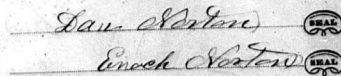 Dan Norton SEAL
Enoch Norton SEAL